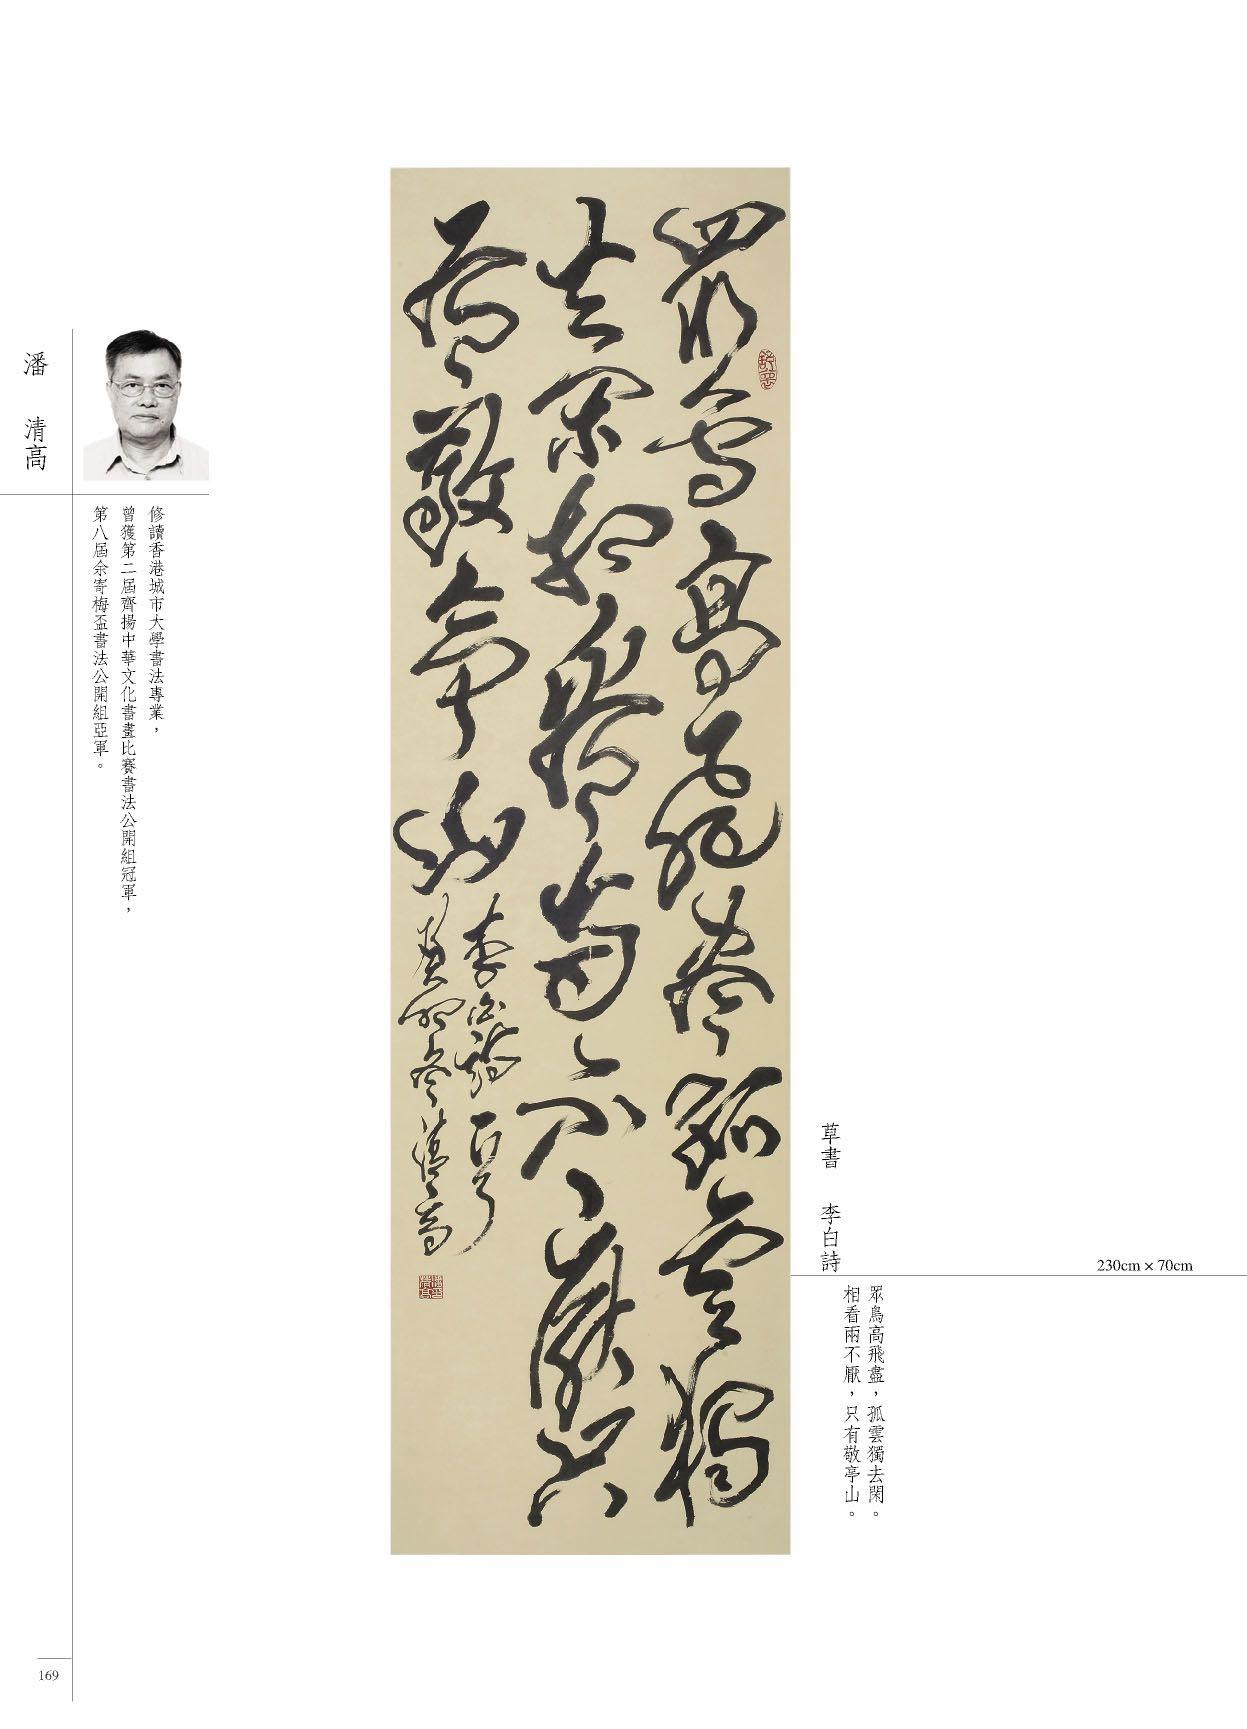 潘 清高
修讀香港城市大學書法專業，
曾獲第二屆齊揚中華文化書畫比賽書法公開組冠軍，
第八屆余寄梅盃書法公開組亞軍。
眾鳥高飛盡孤雲獨
去閑相看兩不厭只
有敬亭山
李白詩一首
癸巳冬清高
潘清高
草書 李白詩
230cm × 70cm
眾鳥高飛盡，孤雲獨去閑。
相看兩不厭，只有敬亭山。
169